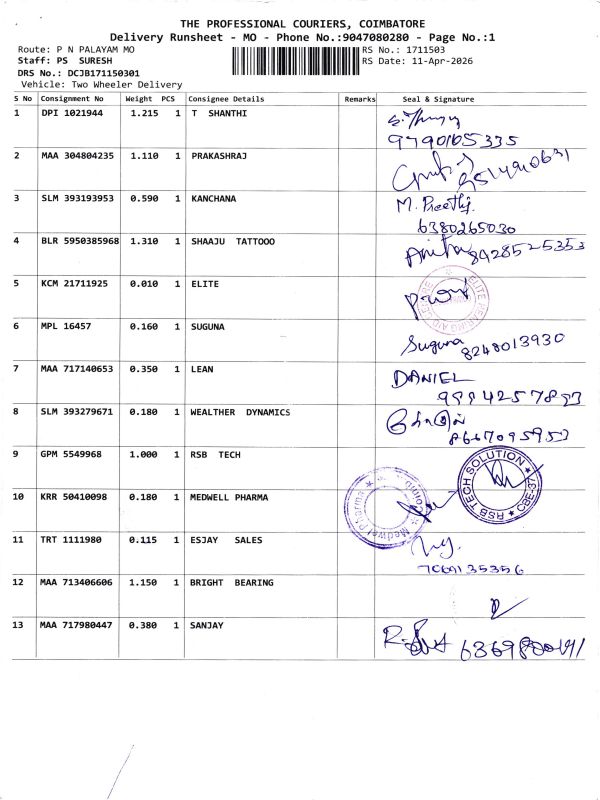 THE PROFESSIONAL COURIERS, COIMBATORE
Delivery Runsheet - MO - Phone No.:9047080280 - Page No.:1
Route: P N PALAYAM MO RS No.: 1711503
Staff: PS SURESH RS Date: 11-Apr-2026
DRS No.: DCJB171150301
Vehicle: Two Wheeler Delivery
S No Consignment No Weight PCS Consignee Details Remarks Seal & Signature
1 DPI 1021944 1.215 1 T SHANTHI
9790165335
2 MAA 304804235 1.110 1 PRAKASHRAJ
3 SLM 393193953 0.590 1 KANCHANA M. Preethi.
6380265030
4 BLR 5950385968 1.310 1 SHAAJU TATTOOO Anitha 8428525353
5 KCM 21711925 0.010 1 ELITE
ELITE HEARING AID CENTRE
6 MPL 16457 0.160 1 SUGUNA Suguna 8248013930
7 MAA 717140653 0.350 1 LEAN DANIEL
8 SLM 393279671 0.180 1 WEALTHER DYNAMICS
8667095953
9 GPM 5549968 1.000 1 RSB TECH
RSB TECH SOLUTION CBE-37
10 KRR 50410098 0.180 1 MEDWELL PHARMA
Medwel Pharma
11 TRT 1111980 0.115 1 ESJAY SALES
12 MAA 713406606 1.150 1 BRIGHT BEARING
13 MAA 717980447 0.380 1 SANJAY